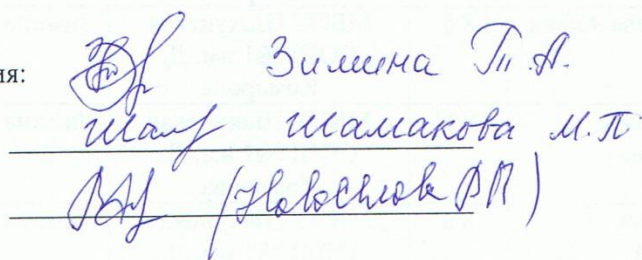 ия: Зимина Т.А.
Шамакова М.П.
(Новосёлов В П)